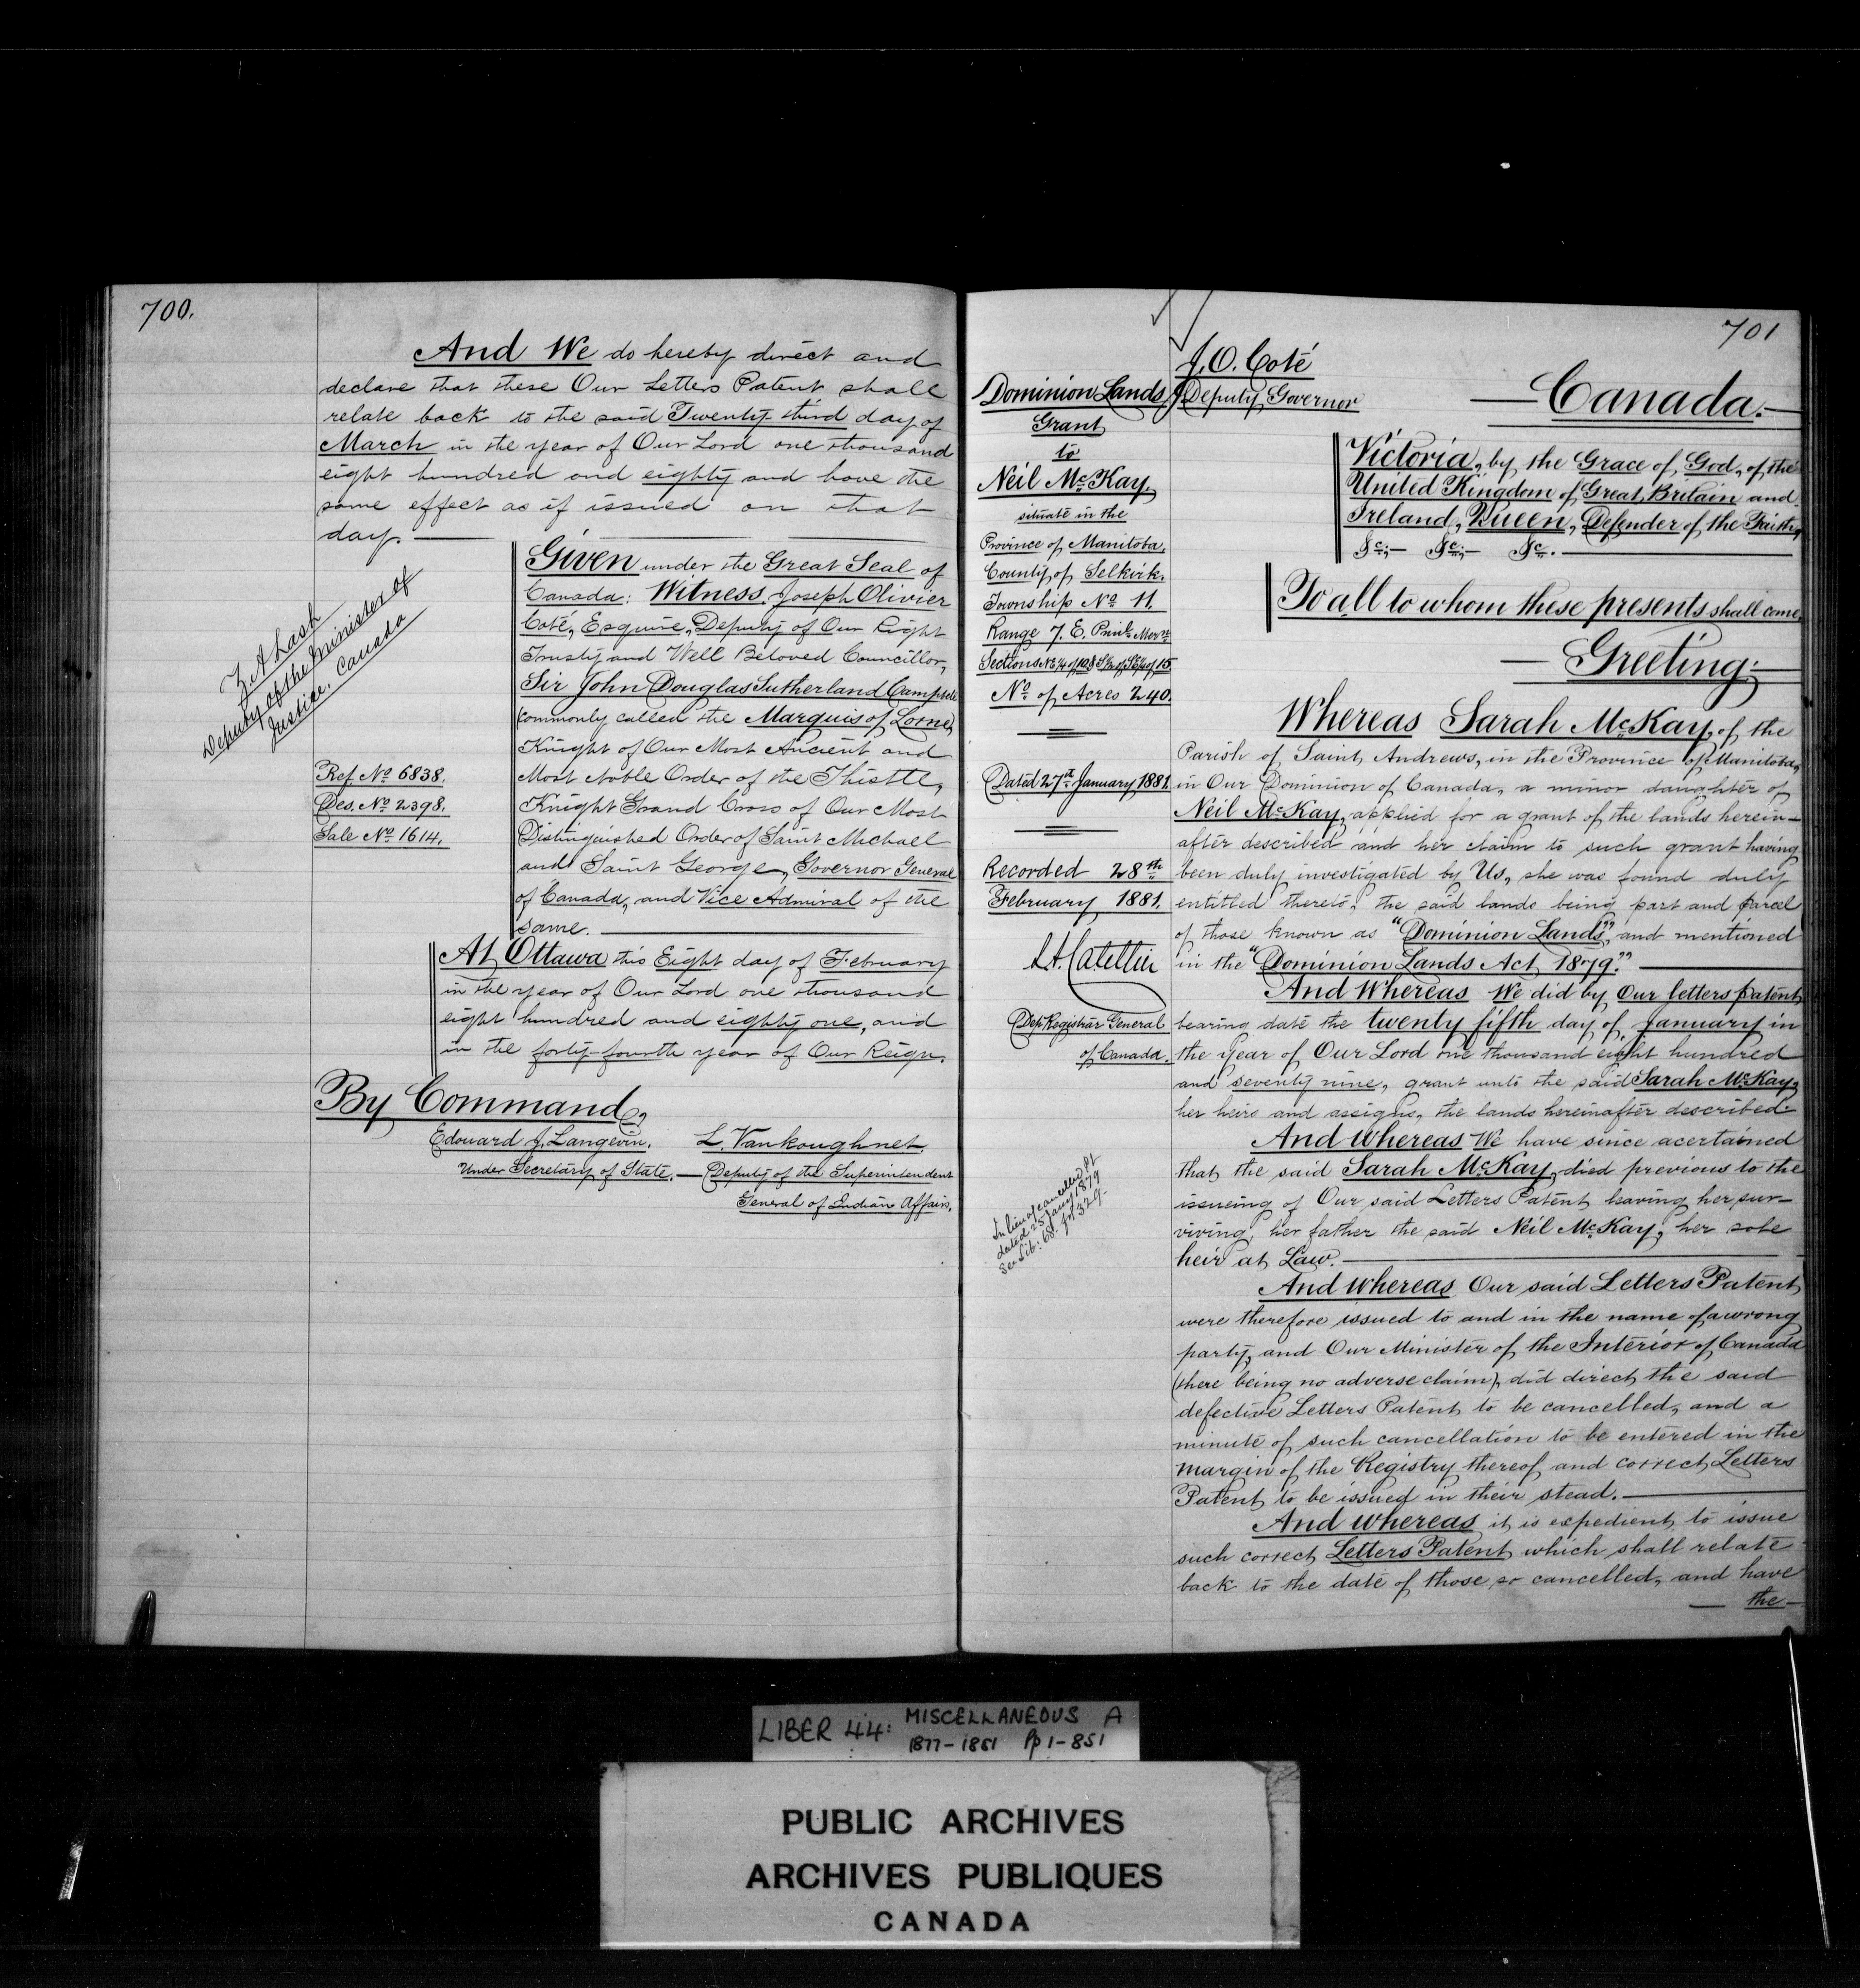 700.
And We do hereby direct and
declare that these Our Letters Patent shall
relate back to the said Twenty third day of
March in the year of Our Lord one thousand
eight hundred and eighty and have the
same effect as if issued on that
day.
Z. A. Lash
Deputy of the Minister of
Justice. Canada
Given under the Great Seal of
Canada: Witness, Joseph Olivier
Coté, Esquire, Deputy of Our Right
Trusty and Well Beloved Councillor,
Sir John Douglas Sutherland Campbell
(commonly called the Marquis of Lorne)
Knight of Our Most Ancient and
Most Noble Order of the Thistle,
Knight Grand Cross of Our Most
Distinguished Order of Saint Michael
and Saint George, Governor General
of Canada, and Vice Admiral of the
same.
Ref. No 6838.
Des. No 2398.
Sale No 1614.
At Ottawa this Eight day of February
in the year of Our Lord one thousand
eight hundred and eighty one, and
in the forty-fourth year of Our Reign.
By Command,
Edouard J. Langevin. L. Vankoughnet
Under Secretary of State. — Deputy of the Superintendent
General of Indian Affairs.
701
J. O. Coté
Deputy Governor
Dominion Lands
Grant
to
Neil McKay,
situate in the
Province of Manitoba,
County of Selkirk.
Township No 11.
Range 7. E. Prinl Mern
Sections NE 1/4 of 10 & S 1/2 of SE 1/4 of 15
No of Acres 240.
Dated 27th January 1881.
Recorded 28th
February 1881.
L. A. Catellier
Dep Registrar General
of Canada.
In lieu of cancelled Pt
dated 25 Jany 1879
See Lib: 68. fol 329.
Canada.
Victoria, by the Grace of God, of the
United Kingdom of Great Britain and
Ireland, Queen, Defender of the Faith,
&c;— &c;— &c.
To all to whom these presents shall come,
Greeting:
Whereas Sarah McKay, of the
Parish of Saint Andrews, in the Province of Manitoba,
in Our Dominion of Canada, a minor daughter of
Neil McKay, applied for a grant of the lands herein-
after described and her claim to such grant having
been duly investigated by Us, she was found duly
entitled thereto, the said lands being part and parcel
of those known as "Dominion Lands", and mentioned
in the "Dominion Lands Act, 1879."
And Whereas We did by Our letters patent
bearing date the twenty fifth day of January in
the year of Our Lord one thousand eight hundred
and seventy nine, grant unto the said Sarah McKay,
her heirs and assigns, the lands hereinafter described.
And whereas We have since acertained
that the said Sarah McKay, died previous to the
issueing of Our said Letters Patent leaving her sur-
viving, her father the said Neil McKay, her sole
heir at Law.
And whereas Our said Letters Patent
were therefore issued to and in the name of a wrong
party, and Our Minister of the Interior of Canada
(there being no adverse claim), did direct the said
defective Letters Patent to be cancelled, and a
minute of such cancellation to be entered in the
margin of the Registry thereof and correct Letters
Patent to be issued in their stead.
And whereas it is expedient to issue
such correct Letters Patent which shall relate
back to the date of those so cancelled, and have
— the —
LIBER 44: MISCELLANEOUS A
1877-1881 Pp 1-851
PUBLIC ARCHIVES
ARCHIVES PUBLIQUES
CANADA